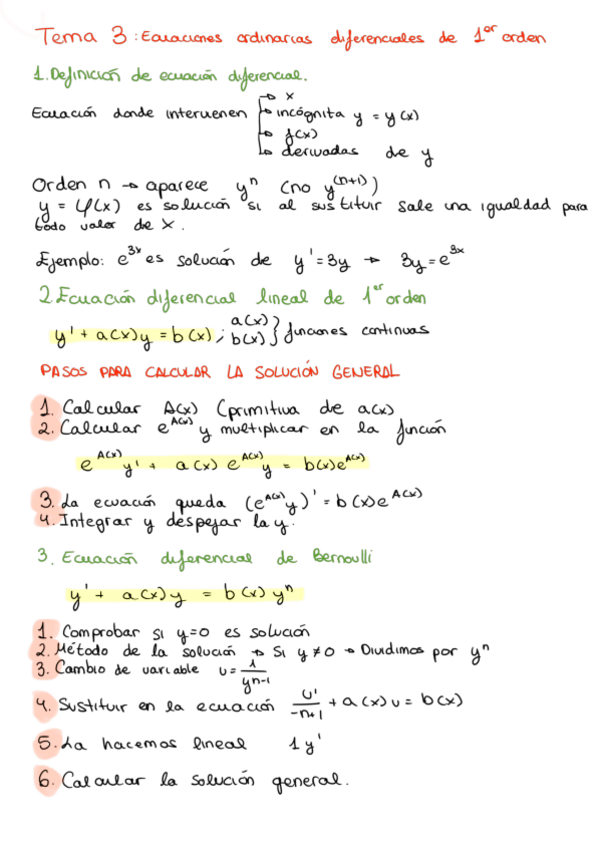 Tema 3: Ecuaciones ordinarias diferenciales de 1er orden
1. Definición de ecuación diferencial.
→ x
Ecuación donde intervienen → incógnita y = y(x)
→ f(x)
→ derivadas de y
Orden n → aparece yⁿ (no y⁽ⁿ⁺¹⁾)
y = φ(x) es solución si al sustituir sale una igualdad para
todo valor de x.
Ejemplo: e³ˣ es solución de y' = 3y → 3y = e³ˣ
2. Ecuación diferencial lineal de 1er orden
y' + a(x)y = b(x) ; a(x) b(x) } funciones continuas
PASOS PARA CALCULAR LA SOLUCIÓN GENERAL
1. Calcular A(x) (primitiva de a(x)
2. Calcular e^A(x) y multiplicar en la función
e^A(x) y' + a(x) e^A(x) y = b(x)e^A(x)
3. La ecuación queda (e^A(x) y)' = b(x)e^A(x)
4. Integrar y despejar la y.
3. Ecuación diferencial de Bernoulli
y' + a(x)y = b(x) yⁿ
1. Comprobar si y=0 es solución
2. Método de la solución → Si y≠0 → Dividimos por yⁿ
3. Cambio de variable u = 1/yⁿ⁻¹
4. Sustituir en la ecuación u'/-n+1 + a(x)u = b(x)
5. La hacemos lineal 1y'
6. Calcular la solución general.